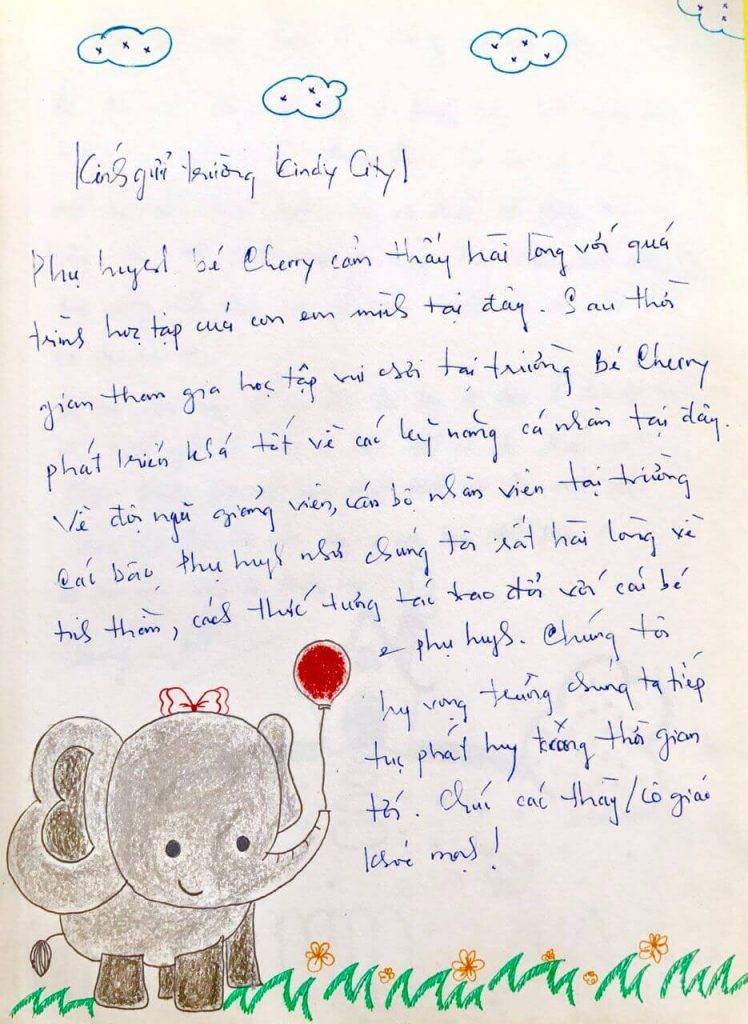 Kính gửi trường Kindy City!
Phụ huynh bé Cherry cảm thấy hài lòng với quá
trình học tập của con em mình tại đây. Sau thời
gian tham gia học tập vui chơi tại trường Bé Cherry
phát triển khá tốt về các kỹ năng cá nhân tại đây.
Về đội ngũ giảng viên, cán bộ nhân viên tại trường
Các bậc phụ huynh như chúng tôi rất hài lòng về
tinh thần, cách thức tương tác trao đổi với các bé
& phụ huynh. Chúng tôi
hy vọng trường chúng ta tiếp
tục phát huy trong thời gian
tới. Chúc các thầy/cô giáo
khoẻ mạnh!